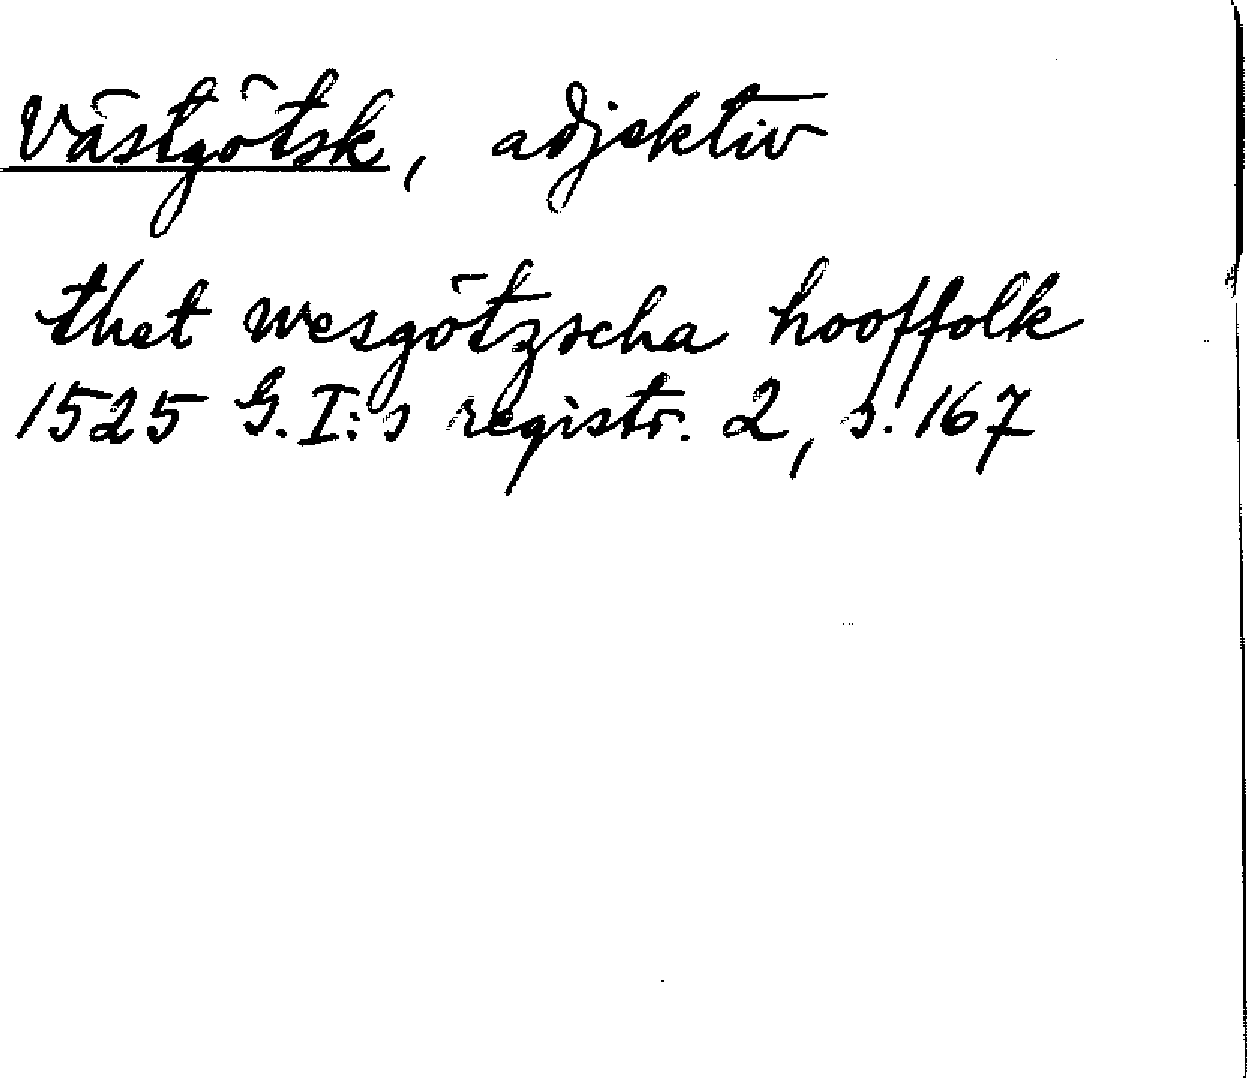 Västgötsk, adjektiv
thet wesgötzscha hooffolk
1525 G. I:s registr. 2, s. 167